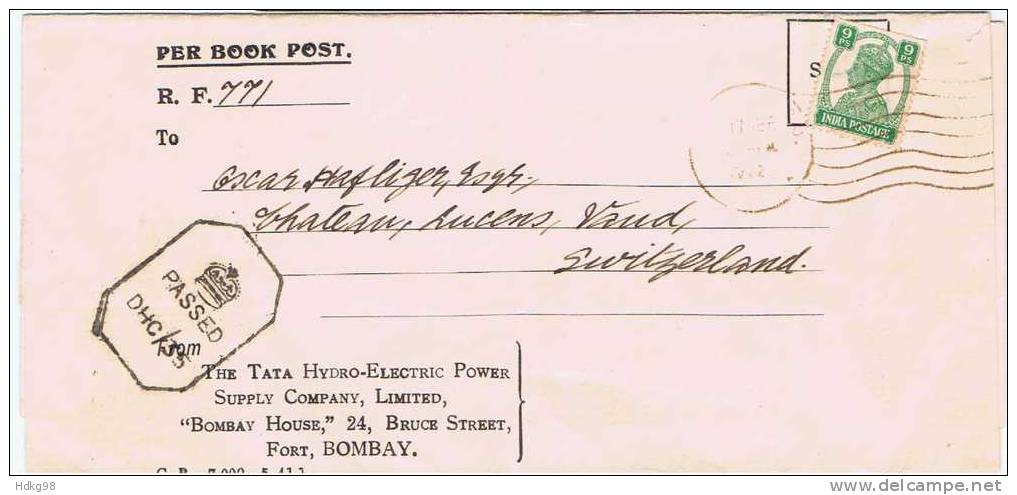 PER BOOK POST.
R. F. 771
9 PS 9 PS
INDIA POSTAGE
S
To
Oscar Hafliger, Esqr.,
Chateau, Lucens, Vaud,
Switzerland.
PASSED
DHC/35
From
THE TATA HYDRO-ELECTRIC POWER
SUPPLY COMPANY, LIMITED,
"BOMBAY HOUSE," 24, BRUCE STREET,
FORT, BOMBAY.
Hdkg98
www.delcampe.net